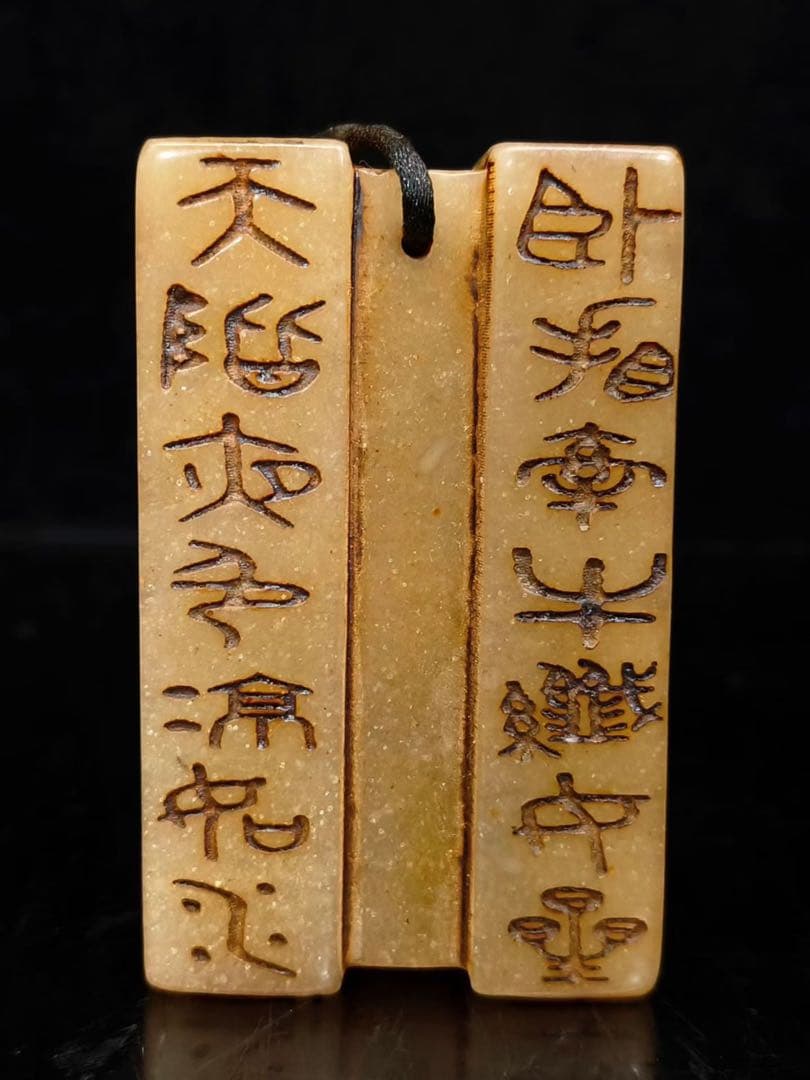 天階夜色凉如水
卧看牽牛織女星